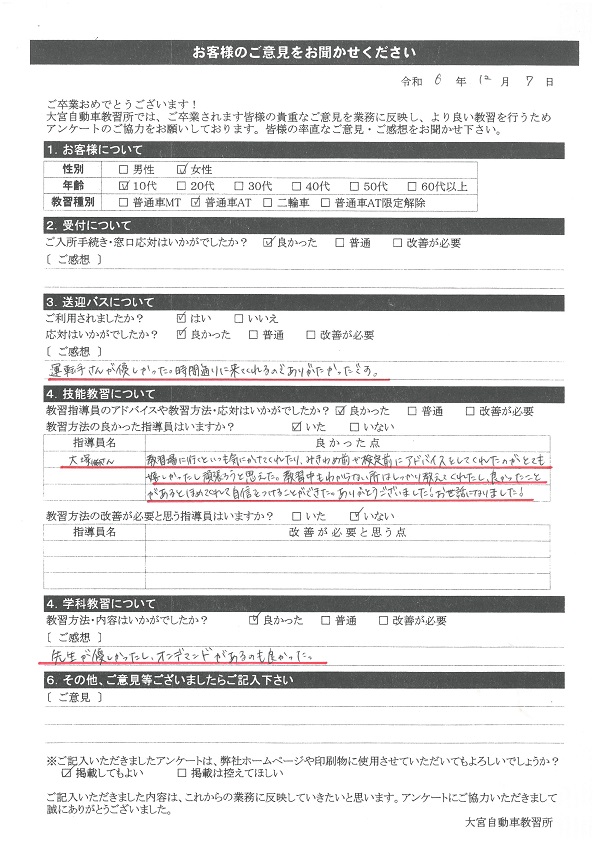 お客様のご意見をお聞かせください
令和 6 年 12 月 7 日
ご卒業おめでとうございます！
大宮自動車教習所では、ご卒業されます皆様の貴重なご意見を業務に反映し、より良い教習を行うため
アンケートのご協力をお願いしております。皆様の率直なご意見・ご感想をお聞かせ下さい。
1. お客様について
性別 □ 男性 ☑ 女性
年齢 ☑ 10代 □ 20代 □ 30代 □ 40代 □ 50代 □ 60代以上
教習種別 □ 普通車MT ☑ 普通車AT □ 二輪車 □ 普通車AT限定解除
2. 受付について
ご入所手続き・窓口応対はいかがでしたか？ ☑ 良かった □ 普通 □ 改善が必要
〔 ご感想 〕
3. 送迎バスについて
ご利用されましたか？ ☑ はい □ いいえ
応対はいかがでしたか？ ☑ 良かった □ 普通 □ 改善が必要
〔 ご感想 〕
運転手さんが優しかった。時間通りに来てくれるのでありがたかったです。
4. 技能教習について
教習指導員のアドバイスや教習方法・応対はいかがでしたか？ ☑ 良かった □ 普通 □ 改善が必要
教習方法の良かった指導員はいますか？ ☑ いた □ いない
指導員名 良かった点
大塚さん 教習場に行くといつも気にかけてくれたり、みきわめ前や検定前にアドバイスをしてくれたのがとても
嬉しかったし頑張ろうと思えた。教習中もわからない所はしっかり教えてくれたし、良かったこと
があるとほめてくれて自信をつけることができた。ありがとうございました！お世話になりました！
教習方法の改善が必要と思う指導員はいますか？ □ いた ☑ いない
指導員名 改善が必要と思う点
4. 学科教習について
教習方法・内容はいかがでしたか？ ☑ 良かった □ 普通 □ 改善が必要
〔 ご感想 〕
先生が優しかったし、オンデマンドがあるのも良かった。
6. その他、ご意見等ございましたらご記入下さい
〔 ご意見 〕
※ご記入いただきましたアンケートは、弊社ホームページや印刷物に使用させていただいてもよろしいでしょうか？
☑ 掲載してもよい □ 掲載は控えてほしい
ご記入いただきました内容は、これからの業務に反映していきたいと思います。アンケートにご協力いただきまして
誠にありがとうございました。
大宮自動車教習所